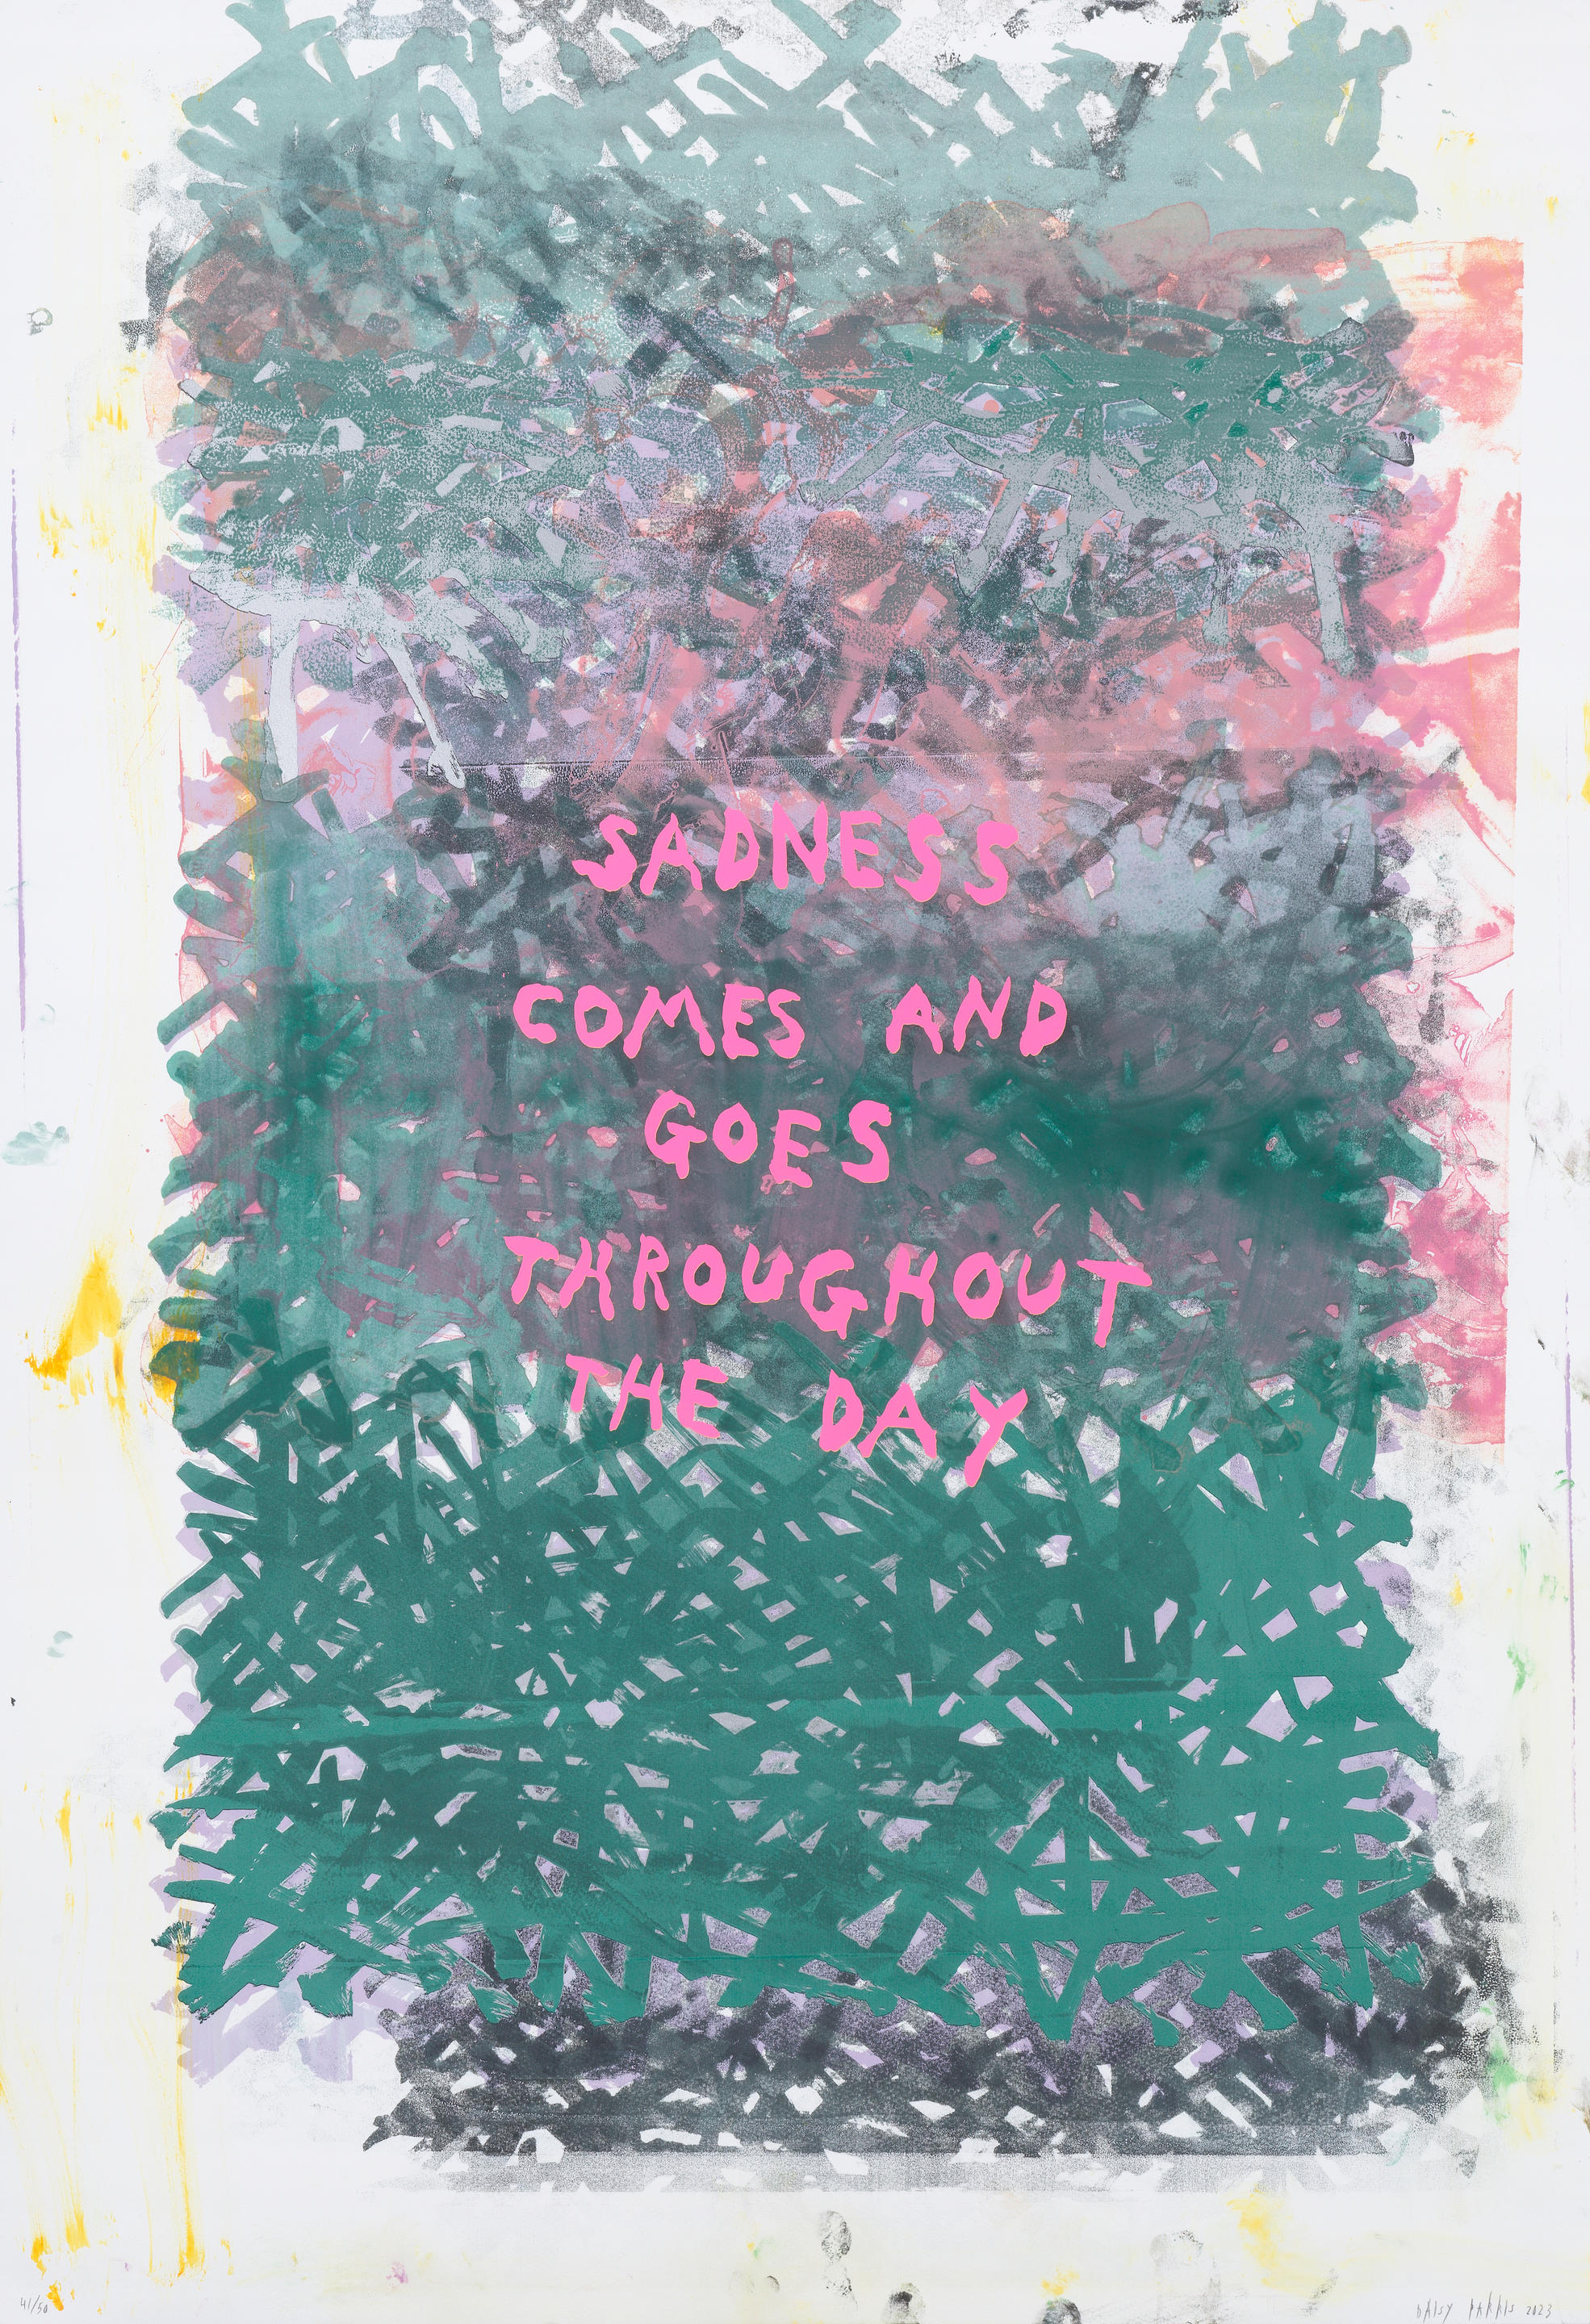 SADNESS
COMES AND
GOES
THROUGHOUT
THE DAY
41/50
DAISY PARRIS 2023